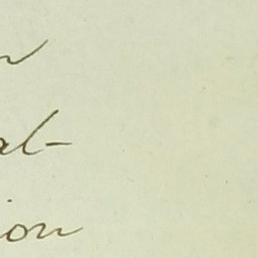 al-
ion